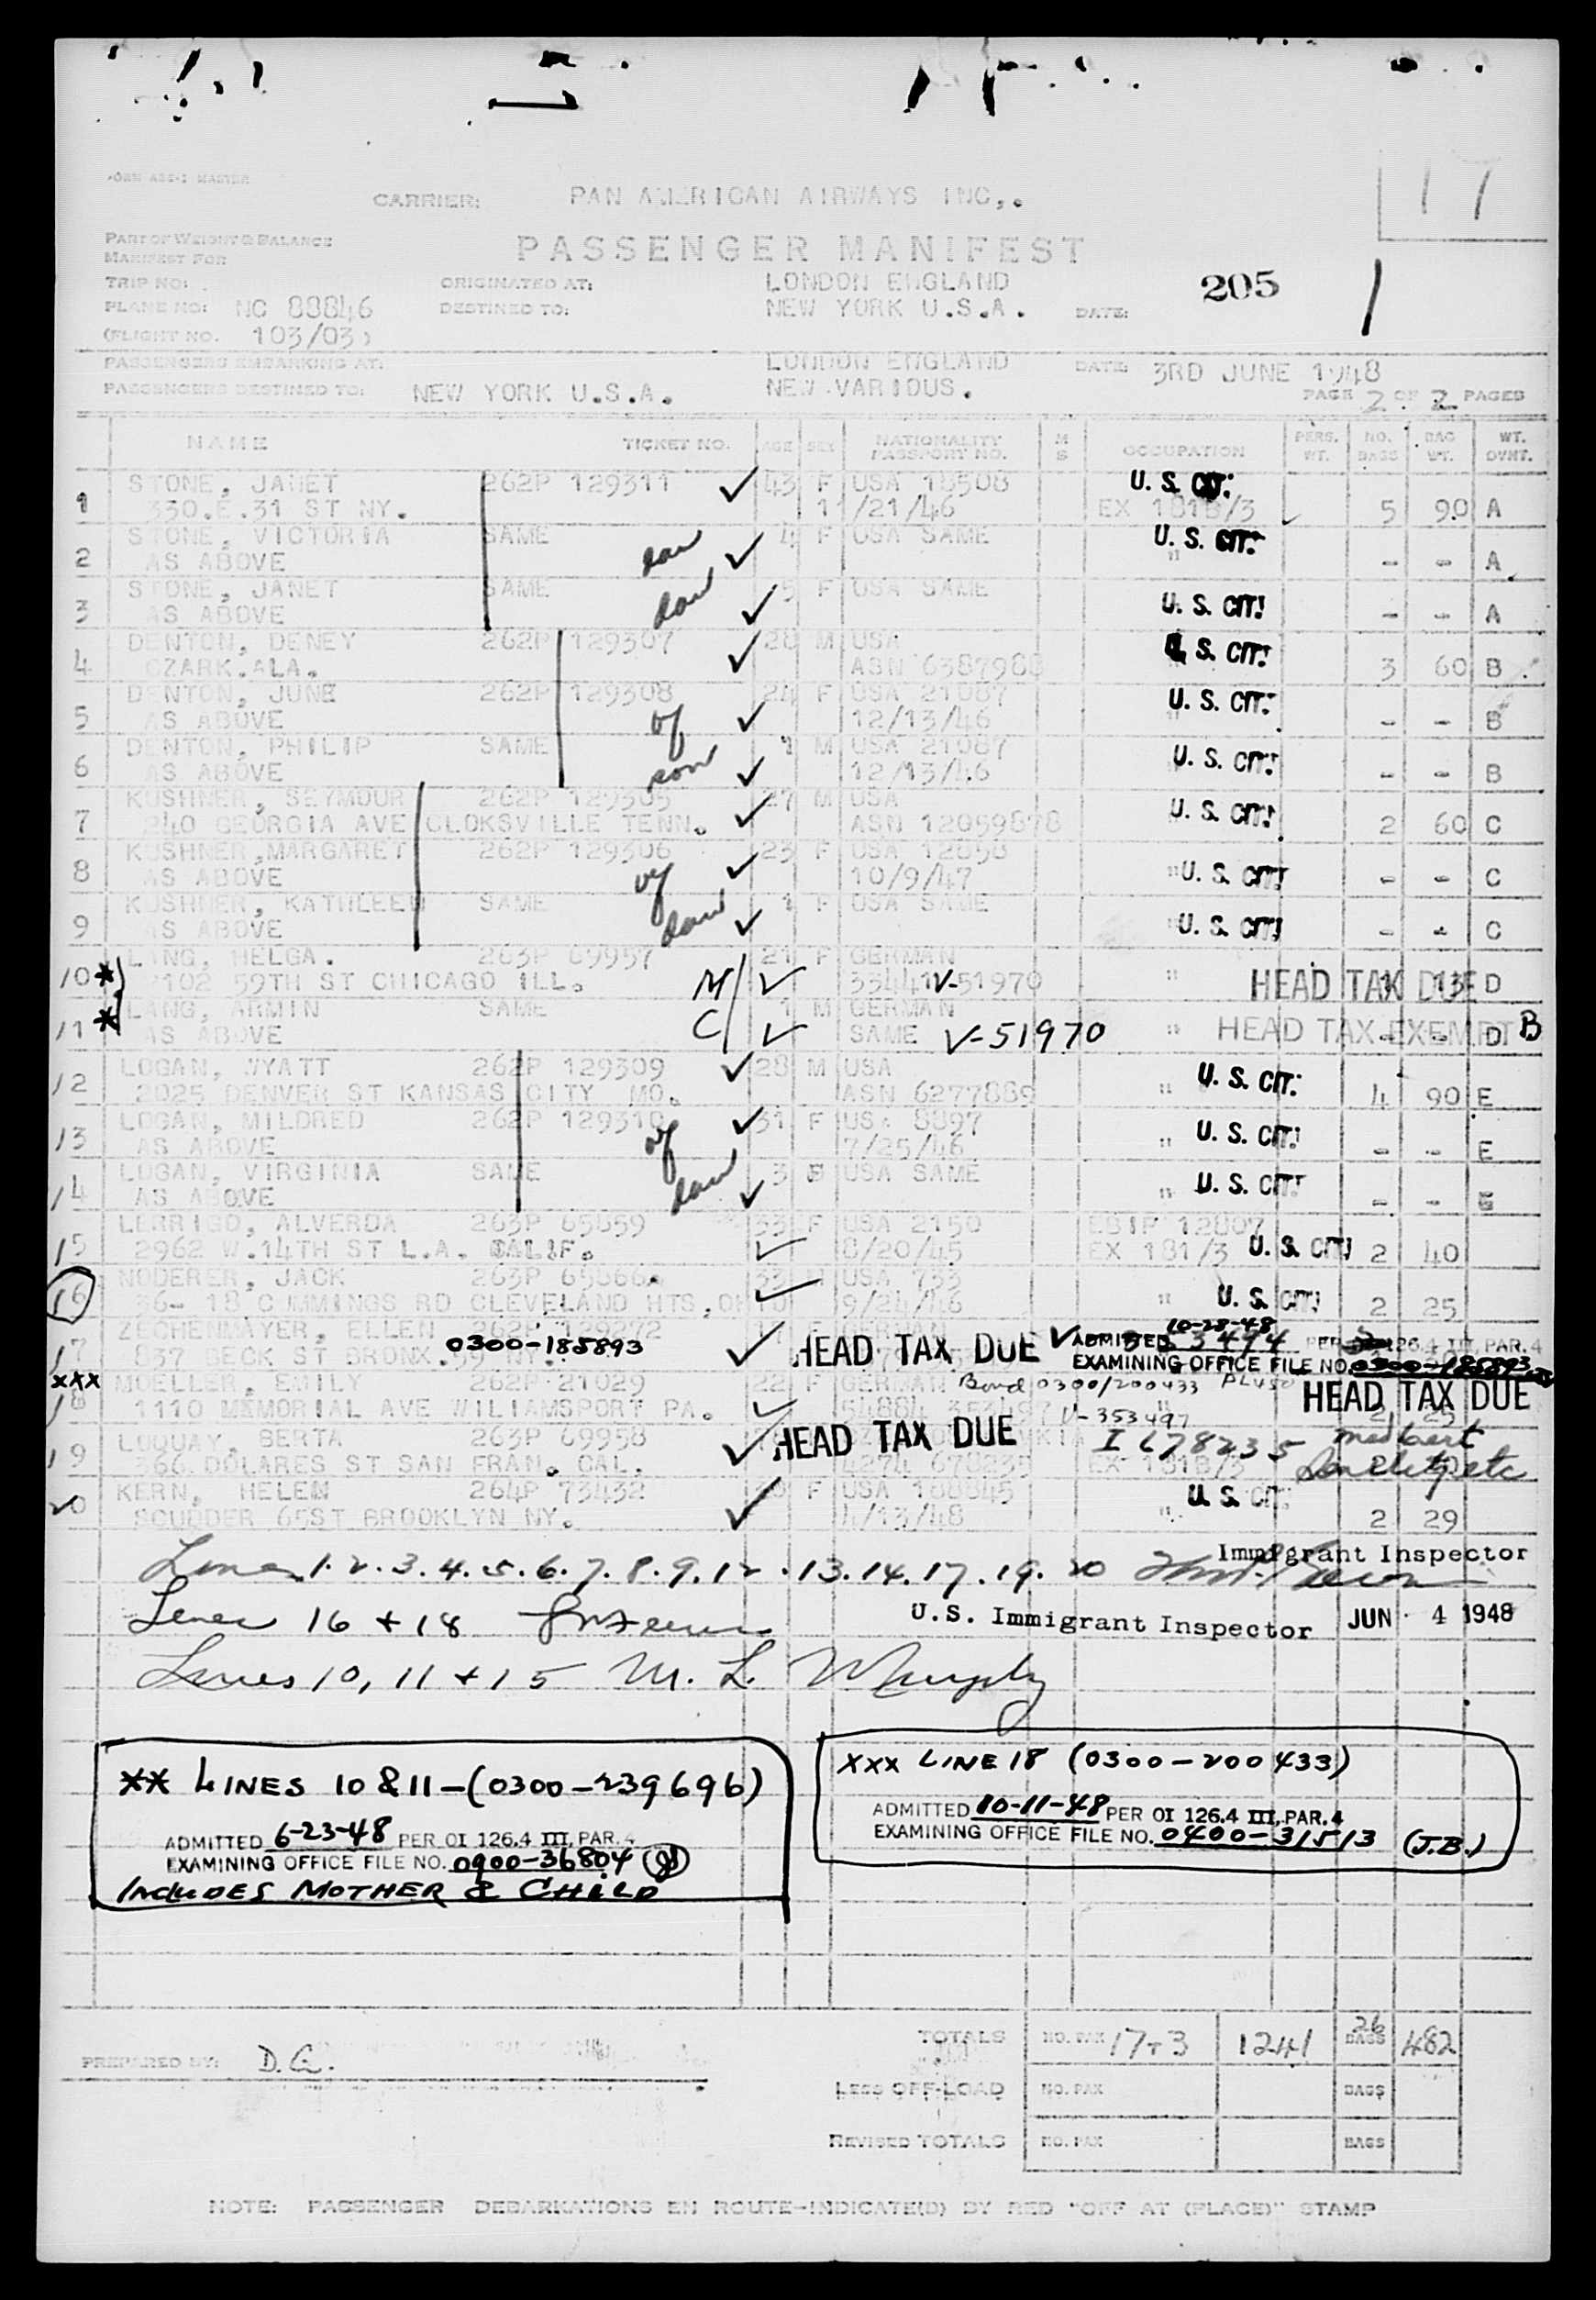 17
CARRIER: PAN AMERICAN AIRWAYS INC,.
PART OF WEIGHT & BALANCE
MANIFEST FOR
PASSENGER MANIFEST
TRIP NO: ORIGINATED AT: LONDON ENGLAND 205
PLANE NO: NC 88846 DESTINED TO: NEW YORK U.S.A. DATE:
(FLIGHT NO. 103/03)
PASSENGERS EMBARKING AT: LONDON ENGLAND DATE: 3RD JUNE 1948
PASSENGERS DESTINED TO: NEW YORK U.S.A. NEW VARIOUS. PAGE 2 OF 2 PAGES
NAME TICKET NO. AGE SEX NATIONALITY PASSPORT NO. M S OCCUPATION PERS. WT. NO. BAGS BAG WT. WT. OVHT.
1 STONE, JANET 262P 129311 43 F USA 18508 U. S. CIT.
330.E.31 ST NY. 11/21/46 EX 181B/3 5 90 A
2 STONE, VICTORIA SAME dau 4 F USA SAME U. S. CIT.
AS ABOVE " - - A
3 STONE, JANET SAME dau 5 F USA SAME U. S. CIT.
AS ABOVE - - A
4 DENTON, DENEY 262P 129307 28 M USA U. S. CIT.
OZARK.ALA. ASN 6387988 3 60 B
5 DENTON, JUNE 262P 129308 24 F USA 21087 U. S. CIT.
AS ABOVE wf 12/13/46 - - B
6 DENTON, PHILIP SAME son 1 M USA 21087 U. S. CIT.
AS ABOVE 12/13/46 - - B
7 KUSHNER, SEYMOUR 262P 129305 27 M USA U. S. CIT.
240 GEORGIA AVE CLOKSVILLE TENN. ASN 12059878 2 60 C
8 KUSHNER,MARGARET 262P 129306 23 F USA 12858 U. S. CIT.
AS ABOVE wf 10/9/47 " - - C
9 KUSHNER, KATHLEEN SAME dau 1 F USA SAME U. S. CIT.
AS ABOVE " - - C
10 * LANG, HELGA. 263P 69957 M/ 21 F GERMAN
102 59TH ST CHICAGO ILL. V-51970 " HEAD TAX DUE D
11 * LANG, ARMIN SAME C/ 1 M GERMAN
AS ABOVE SAME V-51970 " HEAD TAX EXEMPT D B
12 LOGAN, WYATT 262P 129309 28 M USA U. S. CIT.
2025 DENVER ST KANSAS CITY MO. ASN 6277889 " 4 90 E
13 LOGAN, MILDRED 262P 129310 31 F USA 8897 U. S. CIT.
AS ABOVE wf 7/25/46 " - - E
14 LOGAN, VIRGINIA SAME dau 3 F USA SAME U. S. CIT.
AS ABOVE " - - E
15 LERRIGO, ALVERDA 263P 65659 33 F USA 2150 EBIF 12807
2962 W.14TH ST L.A. CALIF. 8/20/45 EX 181/3 U. S. CIT. 2 40
16 NODERER, JACK 263P 33 M USA 733
36- 18 CUMMINGS RD CLEVELAND HTS, 9/24/46 " U. S. CIT. 2 25
17 ZECHENMAYER, ELLEN 262P 129272 0300-185893 HEAD TAX DUE ADMITTED 10-28-48 PER 126.4 III, PAR. 4
837 BECK ST BRONX. NY. EXAMINING OFFICE FILE NO. 0300-185893
xxx 18 MOELLER, EMILY 262P 21029 22 F GERMAN Bond 0300/200433 HEAD TAX DUE
1110 MEMORIAL AVE WILIAMSPORT PA. V-353497
19 LUQUAY, BERTA 263P 69958 HEAD TAX DUE I 678235 med cert
66 DOLARES ST SAN FRAN. CAL. EX 181B/3
20 KERN, HELEN 264P 73432 F USA 168845 U. S. CIT.
SCUDDER 65ST BROOKLYN NY. 4/13/48 " 2 29
Lines 1. 2. 3. 4. 5. 6. 7. 8. 9. 12. 13. 14. 17. 19. 20 Immigrant Inspector
Lines 16 + 18 U.S. Immigrant Inspector JUN 4 1948
Lines 10, 11 + 15 M. L. Murphy
** LINES 10 & 11-(0300-239696)
ADMITTED 6-23-48 PER OI 126.4 III, PAR. 4
EXAMINING OFFICE FILE NO. 0900-36804
INCLUDES MOTHER & CHILD
XXX LINE 18 (0300-200433)
ADMITTED 10-11-48 PER OI 126.4 III, PAR. 4
EXAMINING OFFICE FILE NO. 0400-31513 (J.B.)
PREPARED BY: D.G.
TOTALS NO. PAX 17+3 1241 26 BAGS 482
LESS OFF-LOAD NO. PAX BAGS
REVISED TOTALS NO. PAX BAGS
NOTE: PASSENGER DEBARKATIONS EN ROUTE-INDICATE(D) BY RED "OFF AT (PLACE)" STAMP